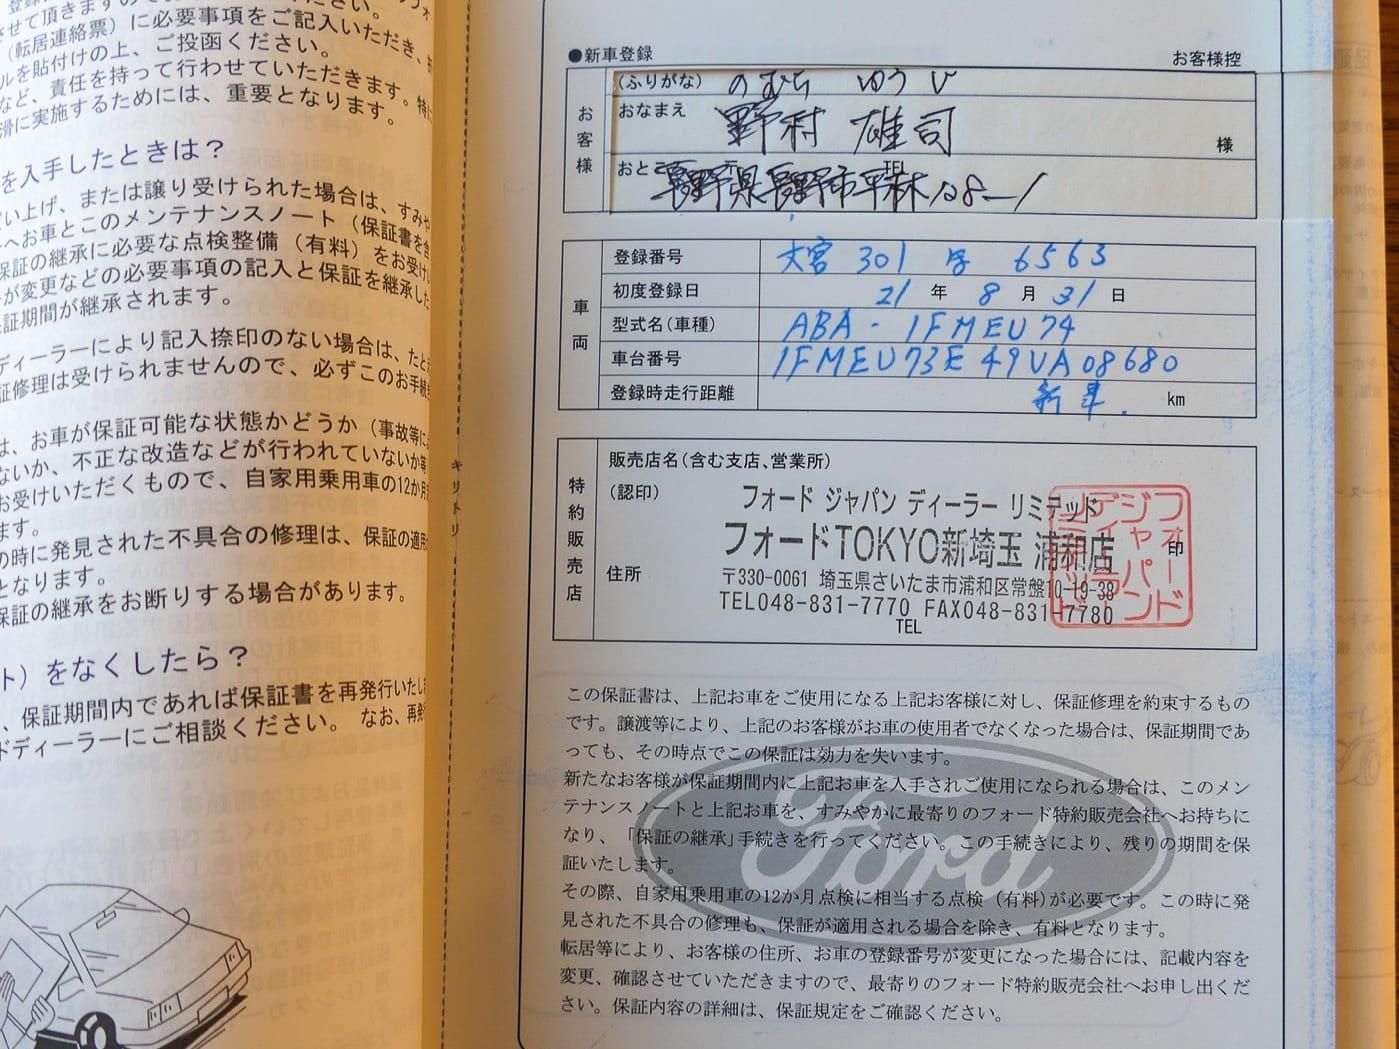 させて頂きますので
(転居連絡票)に必要事項をご記入いただき、
ルを貼付けの上、ご投函ください。
など、責任を持って行わせていただきます。特に
滑に実施するためには、重要となります。
を入手したときは？
い上げ、または譲り受けられた場合は、すみや
へお車とこのメンテナンスノート（保証書を含
保証の継承に必要な点検整備（有料）をお受けし
が変更などの必要事項の記入と保証を継承した
証期間が継承されます。
ディーラーにより記入捺印のない場合は、たとえ
証修理は受けられませんので、必ずこのお手続き
は、お車が保証可能な状態かどうか（事故等に
ないか、不正な改造などが行われていないか等
お受けいただくもので、自家用乗用車の12か月
ます。
の時に発見された不具合の修理は、保証の適用
となります。
保証の継承をお断りする場合があります。
ト）をなくしたら？
、保証期間内であれば保証書を再発行いたし
ドディーラーにご相談ください。なお、再発行
キリトリ
●新車登録
お客様控
お客様
(ふりがな) のむら ゆうじ
おなまえ 野村 雄司 様
おところ 長野県長野市平林108-1
TEL
車両
登録番号 大宮 301 す 6563
初度登録日 21 年 8 月 31 日
型式名(車種) ABA-1FMEU74
車台番号 1FMEU73E49UA08680
登録時走行距離 新車. km
特約販売店
販売店名(含む支店、営業所)
(認印) フォード ジャパン ディーラー リミテッド
フォードTOKYO新埼玉 浦和店 印
住所 〒330-0061 埼玉県さいたま市浦和区常盤10-19-38
TEL048-831-7770 FAX048-831-7780
TEL
フォード
ジャパン
ディーラー
リミテッド
この保証書は、上記お車をご使用になる上記お客様に対し、保証修理を約束するもの
です。譲渡等により、上記のお客様がお車の使用者でなくなった場合は、保証期間であ
っても、その時点でこの保証は効力を失います。
新たなお客様が保証期間内に上記お車を入手されご使用になられる場合は、このメン
テナンスノートと上記お車を、すみやかに最寄りのフォード特約販売会社へお持ちに
なり、「保証の継承」手続きを行ってください。この手続きにより、残りの期間を保
証いたします。
その際、自家用乗用車の12か月点検に相当する点検（有料)が必要です。この時に発
見された不具合の修理も、保証が適用される場合を除き、有料となります。
転居等により、お客様の住所、お車の登録番号が変更になった場合には、記載内容を
変更、確認させていただきますので、最寄りのフォード特約販売会社へお申し出くだ
さい。保証内容の詳細は、保証規定をご確認ください。
Ford